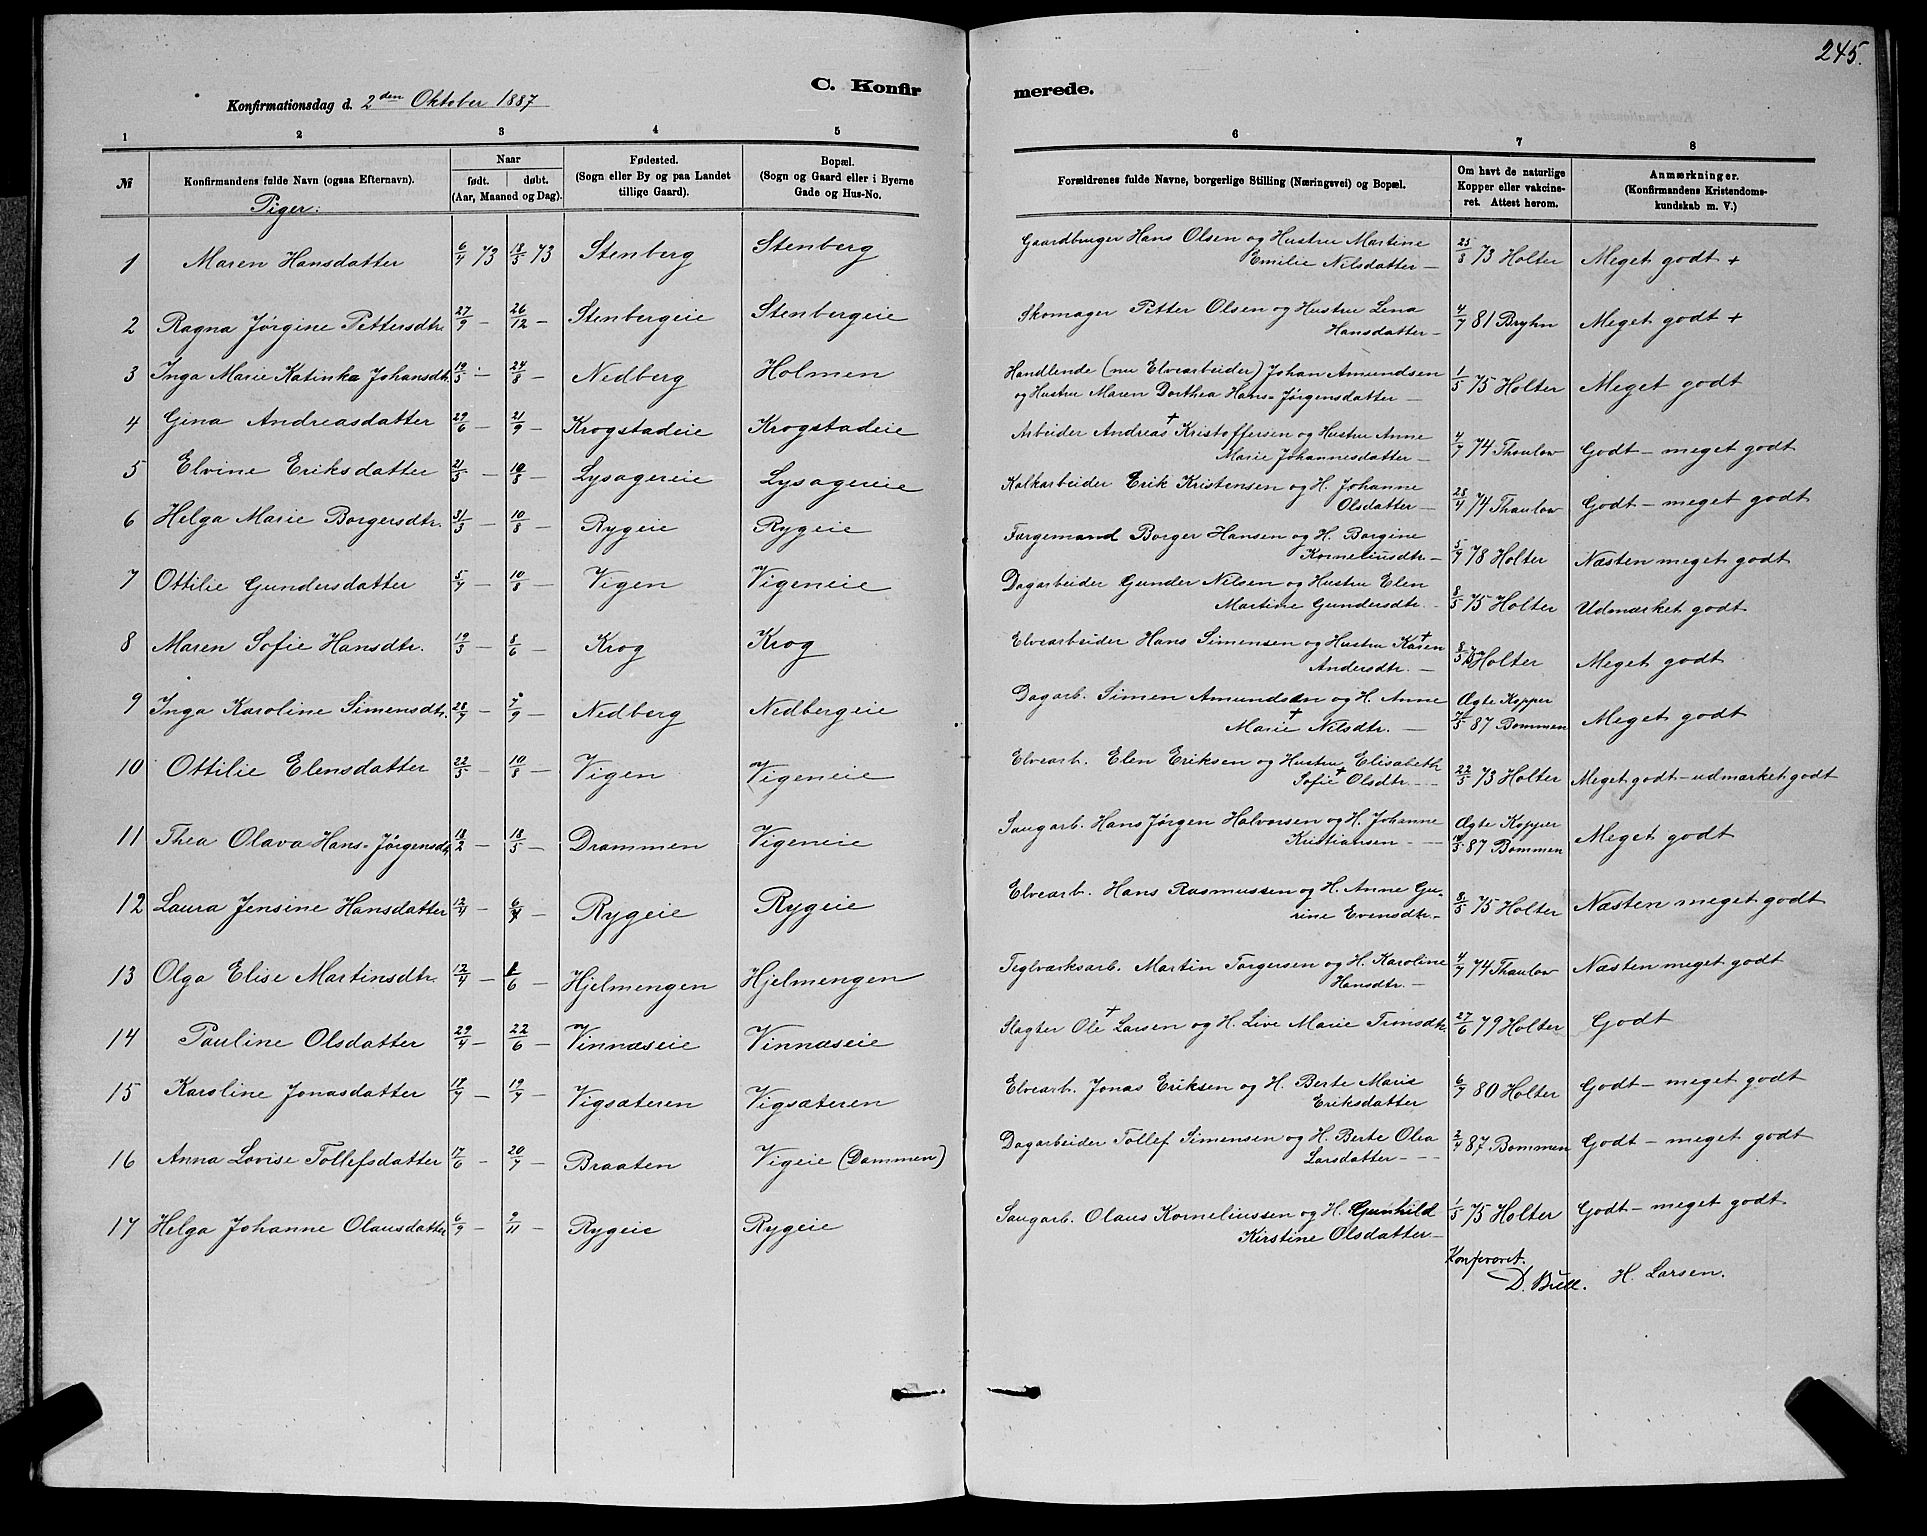 245.
C. Konfirmerede.
Konfirmationsdag d. 2den Oktober 1887
1 2 3 4 5 6 7 8
№ Konfirmandens fulde Navn (ogsaa Efternavn). Naar født. døbt. (Aar, Maaned og Dag). Fødested. (Sogn eller By og paa Landet tillige Gaard). Bopæl. (Sogn og Gaard eller i Byerne Gade og Hus-No. Forældrenes fulde Navne, borgerlige Stilling (Næringsvei) og Bopæl. Om havt de naturlige Kopper eller vakcineret. Attest herom. Anmærkninger. (Konfirmandens Kristendomskundskab m. V.)
Piger:
1 Maren Hansdatter 6/4 73 18/5 73 Stenberg Stenberg Gaardbruger Hans Olsen og Hustru Martine
Emilie Nilsdatter — 25/8 73 Holter Meget godt +
2 Ragna Jørgine Pettersdtr. 27/9 — 26/12 — Stenbergeie Stenbergeie Skomager Petter Olsen og Hustru Lena
Hansdatter — 4/7 81 Bryhn Meget godt +
3 Inga Marie Katinka Johansdt. 19/5 — 24/8 — Nedberg Holmen Handlende (nu Elvearbeider) Johan Amundsen
og Hustru Maren Dorthea Hans-Jørgensdatter — 1/5 75 Holter Meget godt
4 Gina Andreasdatter 29/6 — 21/9 — Krogstadeie Krogstadeie Arbeider Andreas + Kristoffersen og Hustru Anne
Marie Johannesdatter — 4/7 74 Thaulow Godt — meget godt
5 Elvine Eriksdatter 21/5 — 10/8 — Lysagereie Lysagereie Kalkarbeider Erik Kristensen og H. Johanne
Olsdatter — 28/4 74 Thaulow Godt — meget godt
6 Helga Marie Borgersdtr. 31/3 — 10/8 — Rygeie Rygeie Færgemand Borger Hansen og H. Borgine
Korneliusdtr — 5/7 78 Holter Næsten meget godt
7 Ottilie Gundersdatter 5/7 — 10/8 — Vigen Vigeneie Dagarbeider Gunder Nilsen og Hustru Elen
Martine Gundersdtr. — 8/5 75 Holter Udmærket godt
8 Maren Sofie Hansdtr. 19/3 — 8/6 — Krog Krog Elvearbeider Hans Simensen og Hustru Karen +
Andersdtr. — 8/5 Holter Meget godt
9 Inga Karoline Simensdtr. 28/7 — 7/9 — Nedberg Nedbergeie Dagarb. Simen Amundsen og H. Anne
Marie + Nilsdtr. — Ægte Kopper
87 Bommen Meget godt
10 Ottilie Elensdatter 22/5 — 10/8 — Vigen Vigeneie Elvearb. Elen Eriksen og Hustru Elisabeth
Sofie + Olsdtr. — 22/5 73 Holter Meget godt — udmærket godt
11 Thea Olava Hans-Jørgensdt. 18/2 — 18/5 — Drammen Vigeneie Saugarb. Hans Jørgen Halvorsen og H. Johanne
Kristiansen — Ægte Kopper
87 Bommen Meget godt
12 Laura Jensine Hansdatter 12/4 — 6/7 — Rygeie Rygeie Elvearb. Hans Rasmussen og H. Anne Gu-
rine Evensdtr — 8/5 75 Holter Næsten meget godt
13 Olga Elise Martinsdtr. 12/4 — 1/6 — Hjelmengen Hjelmengen Teglværksarb. Martin Torgersen og H. Karoline
Hansdtr. — 4/7 74 Thaulow Næsten meget godt
14 Pauline Olsdatter 29/4 — 22/6 — Vinnæseie Vinnæseie Slagter Ole + Larsen og H. Live Marie Timsdtr. 27/6 79 Holter Godt
15 Karoline Jonasdatter 18/7 — 19/7 — Vigsæteren Vigsæteren Elvearb. Jonas Eriksen og H. Berte Marie
Eriksdatter 6/7 80 Holter Godt — meget godt
16 Anna Lovise Tollefsdatter 17/6 — 20/7 — Braaten Vigeie (Dammen) Dagarbeider Tollef Simensen og H. Berte Olea
Larsdatter — 2/4 87 Bommen Godt — meget godt
17 Helga Johanne Olausdatter 6/9 — 9/11 — Rygeie Rygeie Saugarb. Olaus Korneliussen og H. Gunhild
Kirstine Olsdatter — 1/5 75 Holter Godt — meget godt
Konfereret.
D. Bull. H. Larsen.